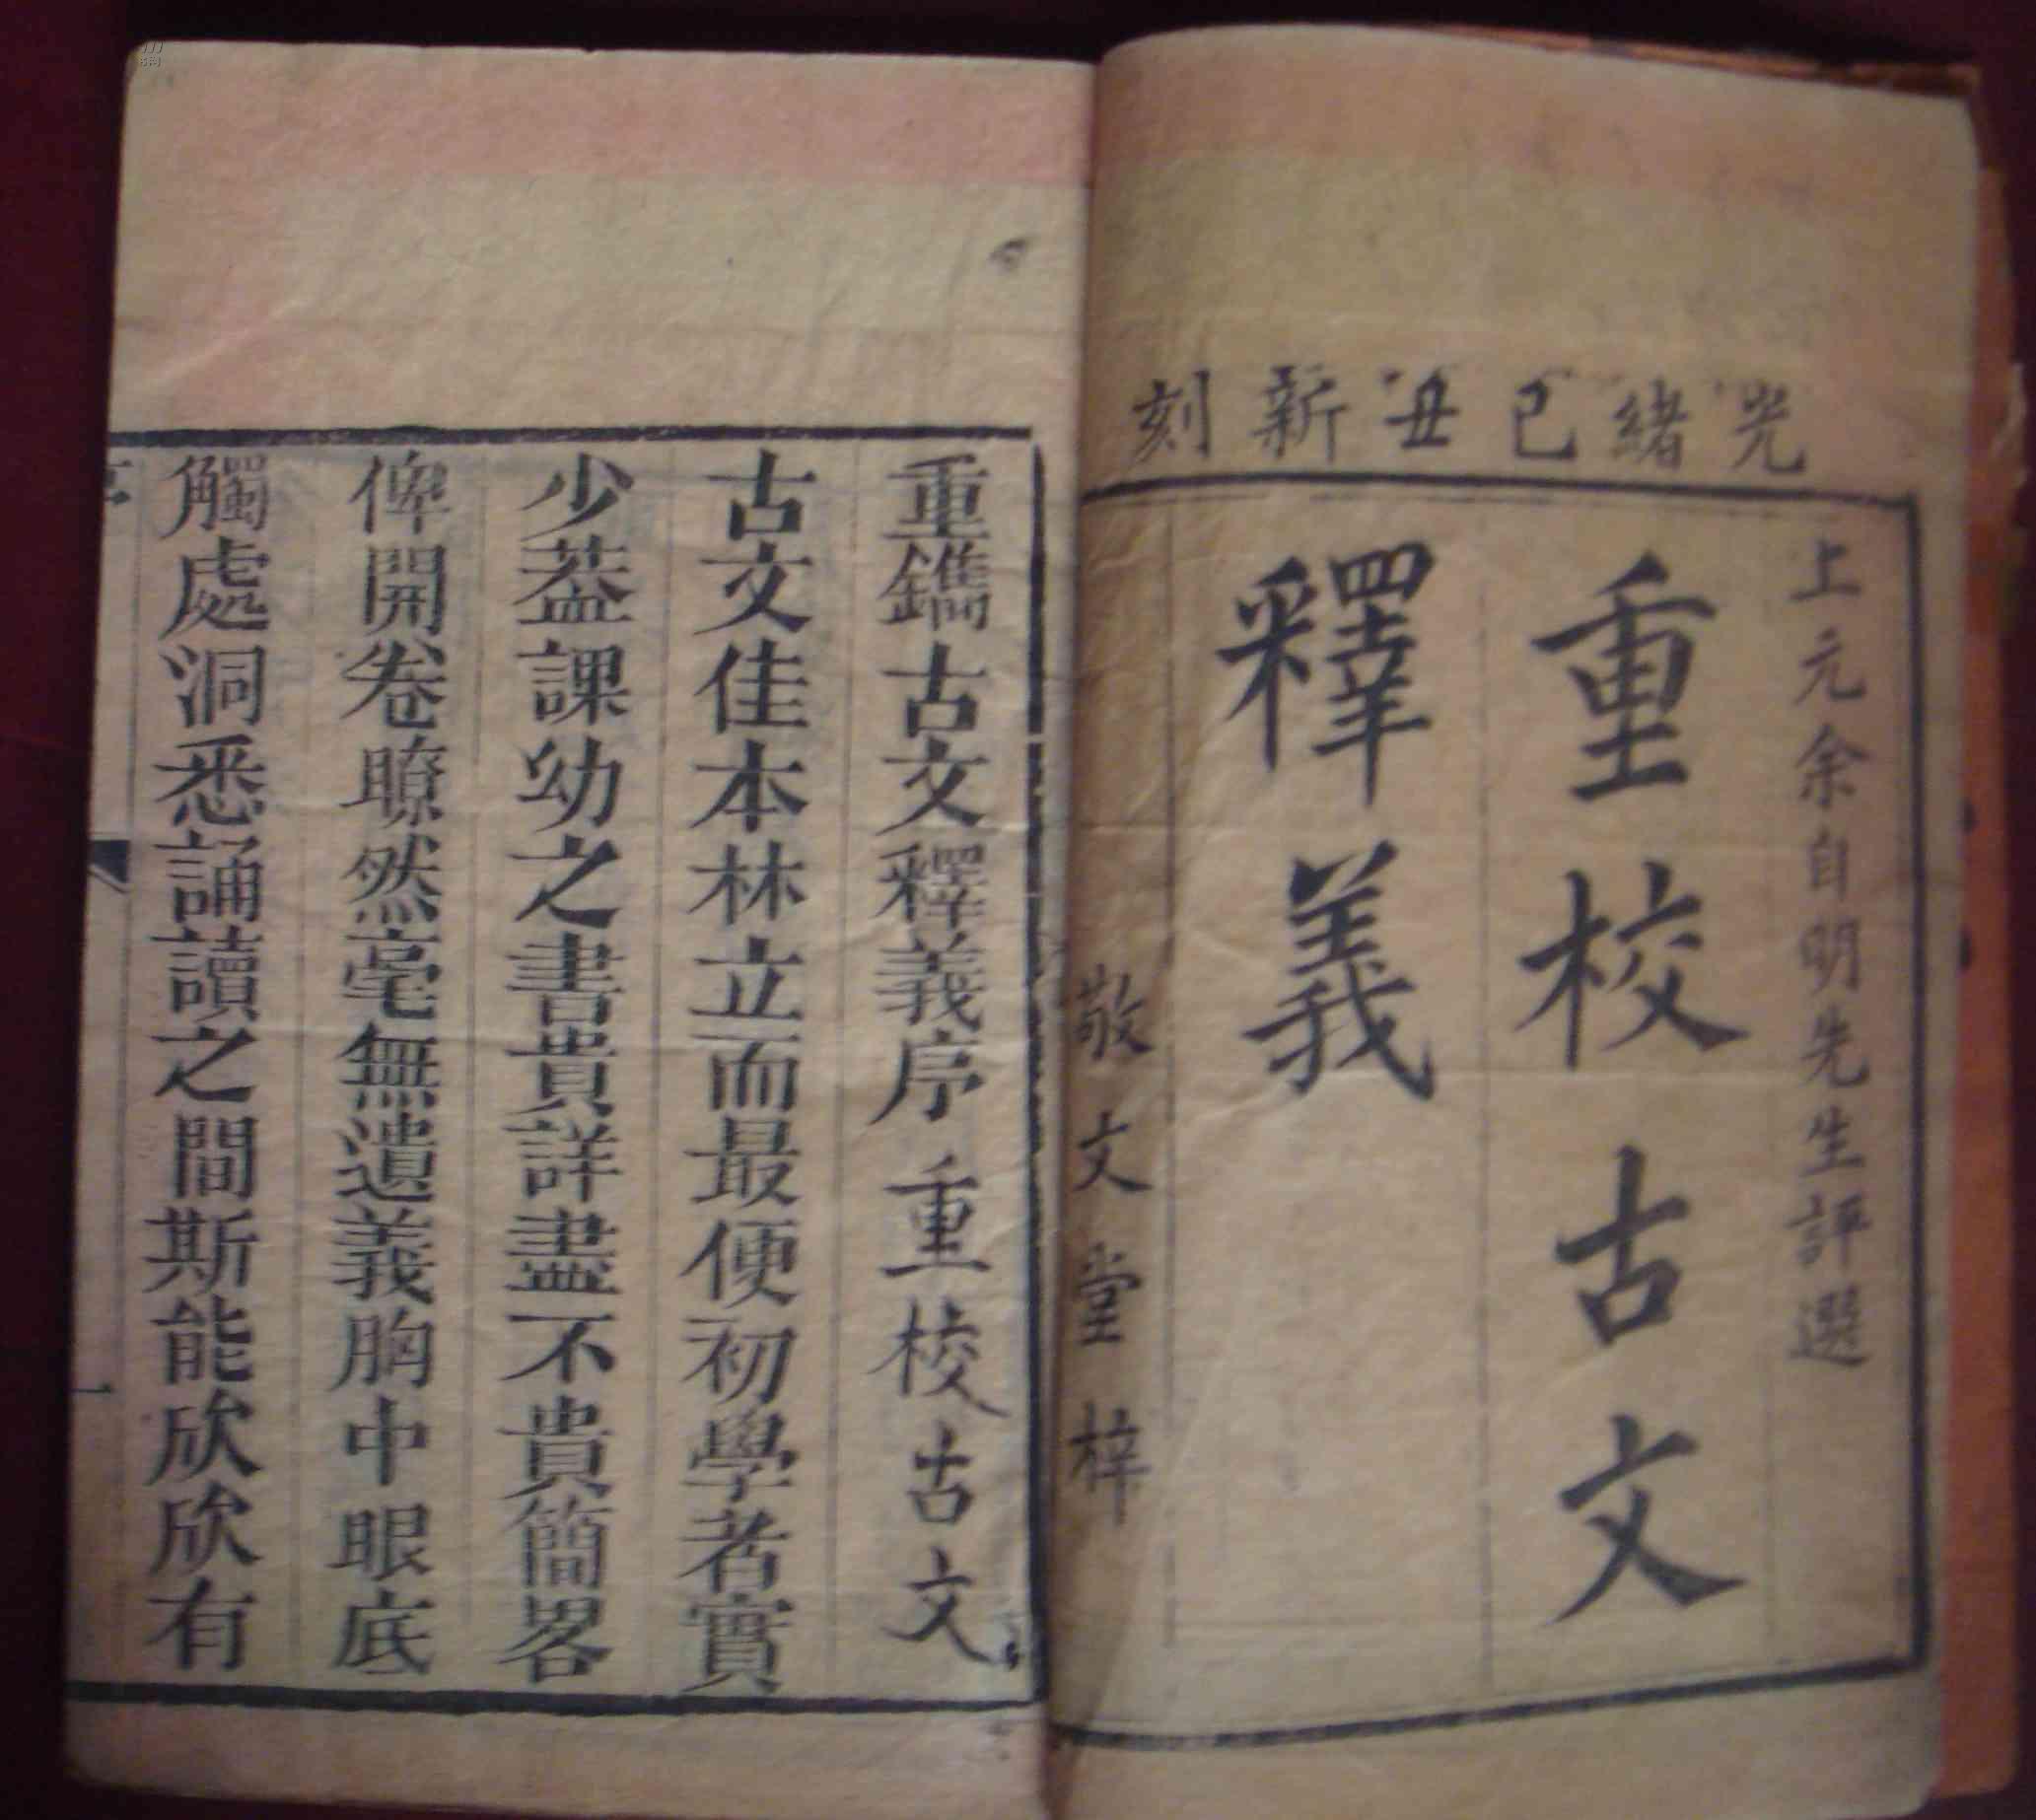 光緒己丑新刻
上元余自明先生評選
重校古文
釋義
敬文堂梓
重鐫古文釋義序 重校古文
古文佳本林立而最便初學者實
少葢課幼之書貴詳盡不貴簡畧
俾開卷瞭然毫無遺義胸中眼底
觸處洞悉誦讀之間斯能欣欣有
一